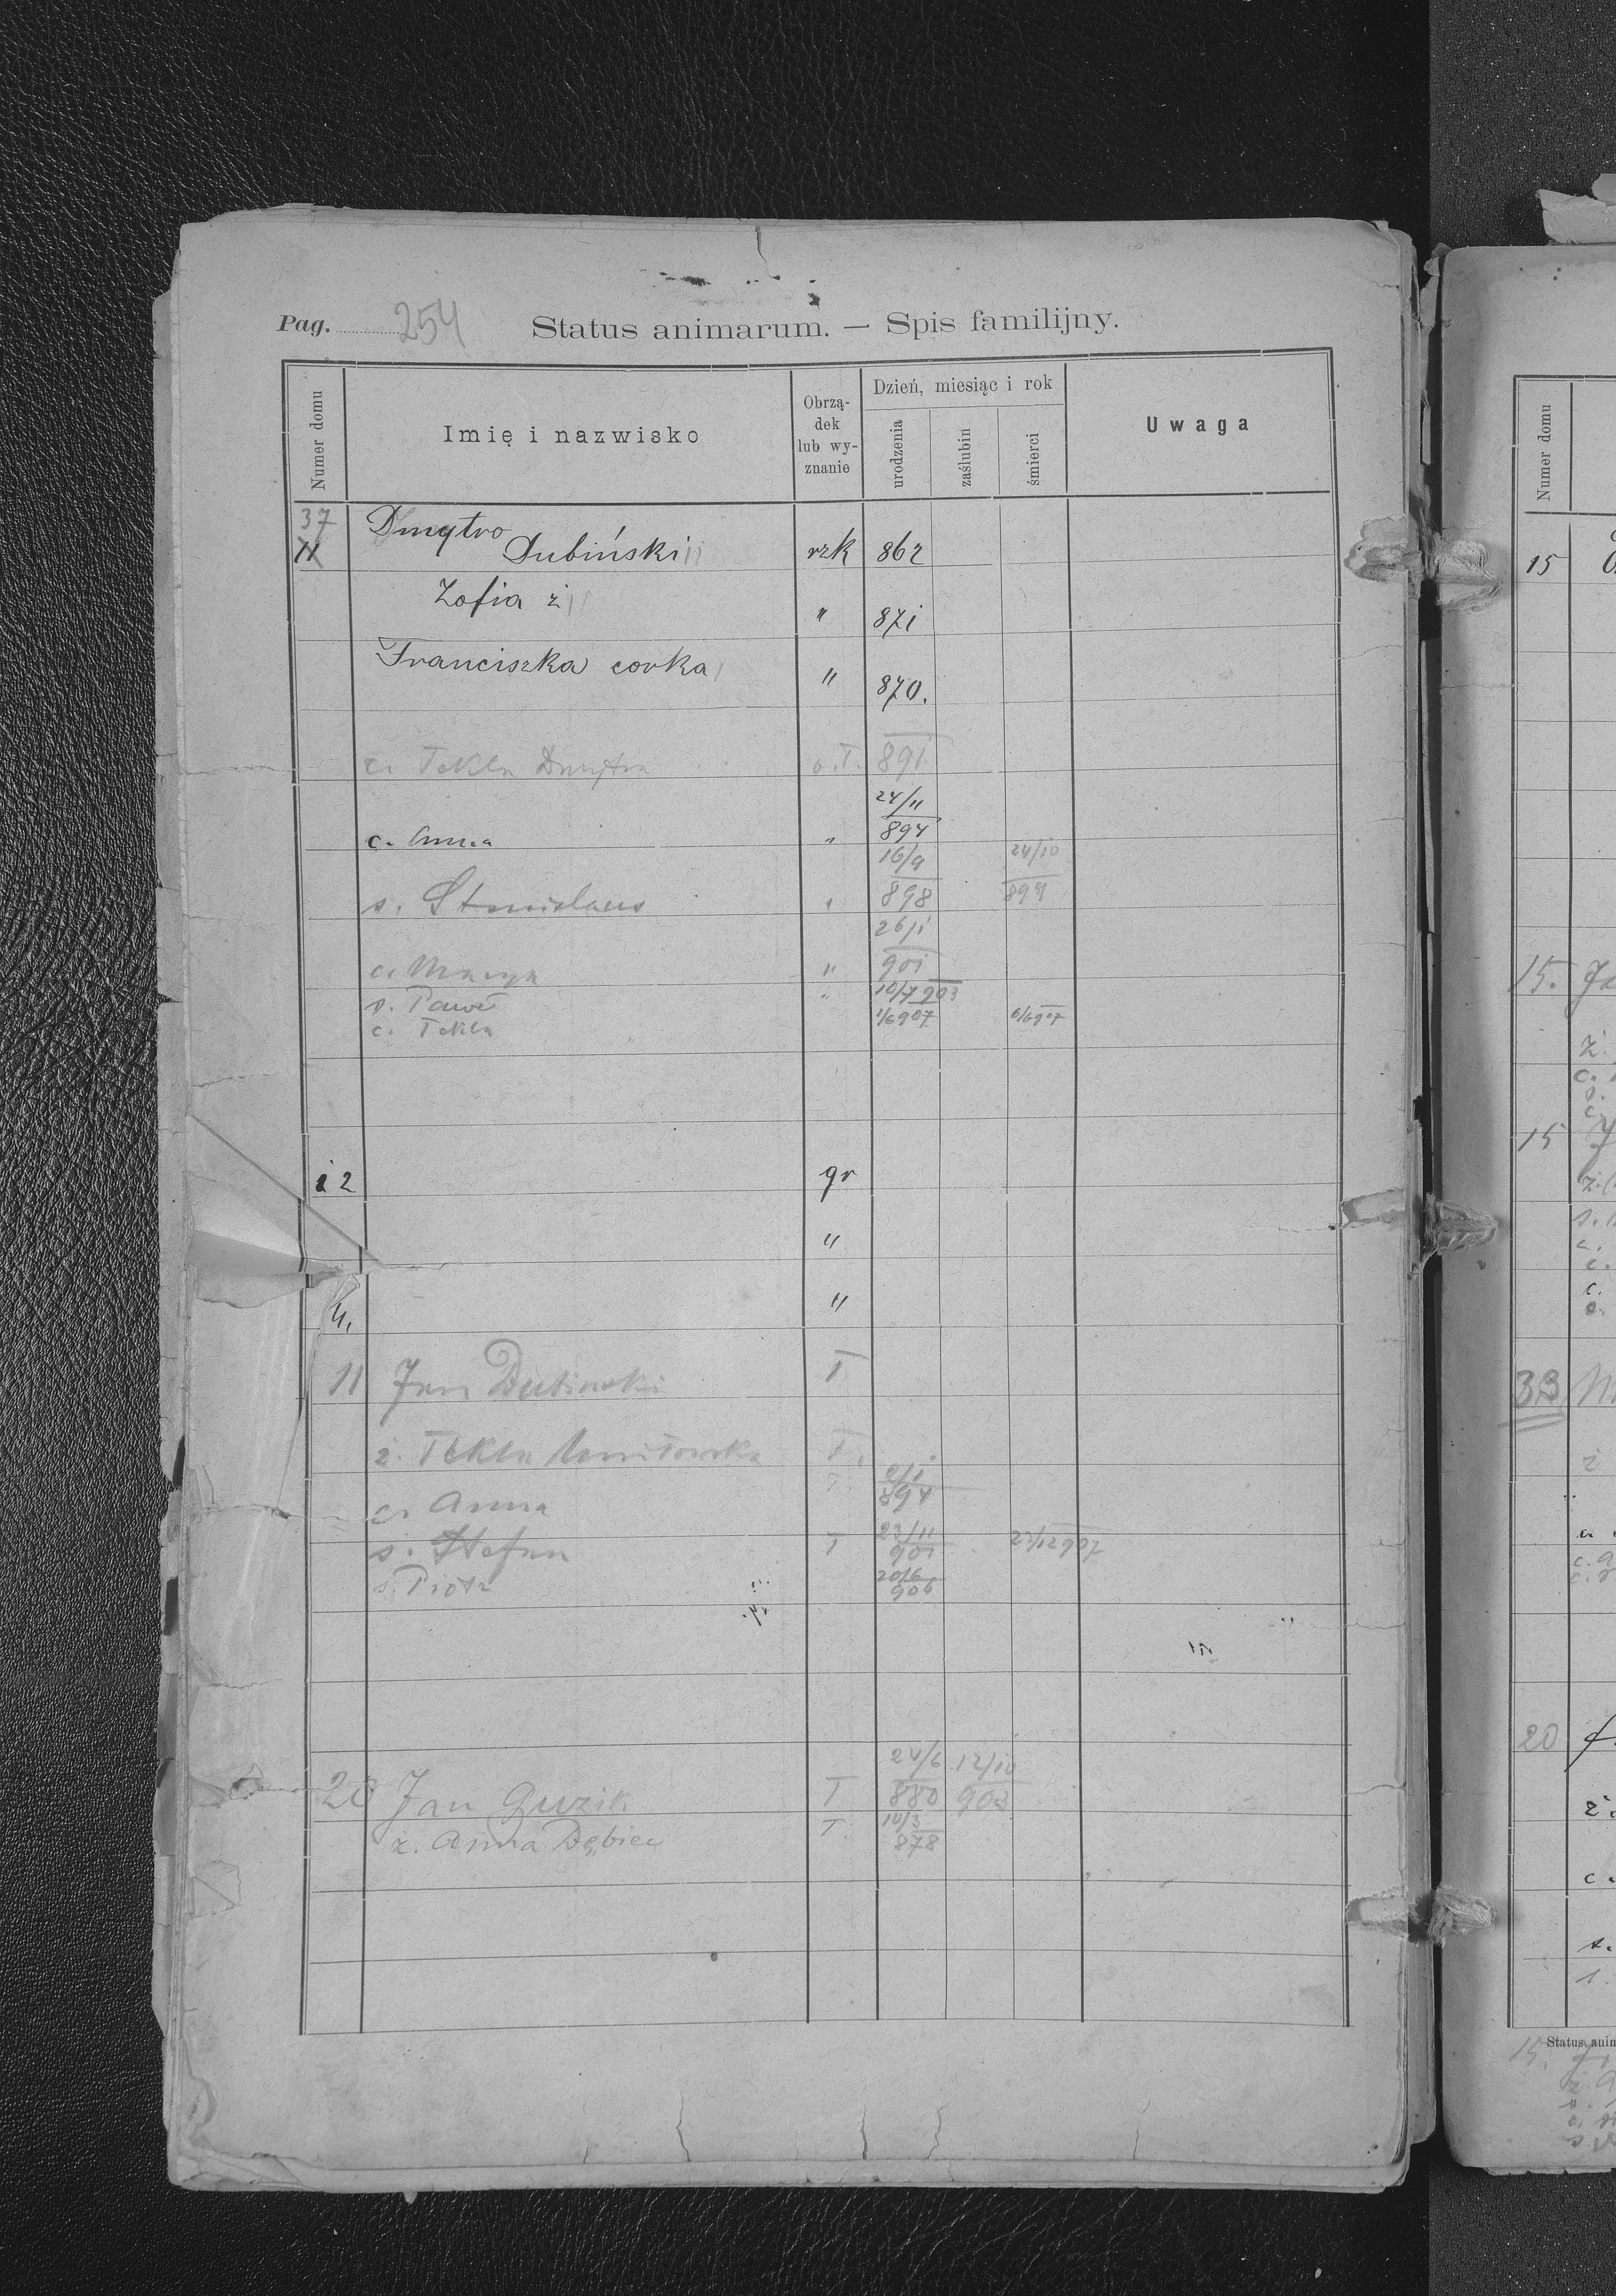 Pag. 254
Status animarum. — Spis familijny.
Numer domu
Imię i nazwisko
Obrzą-
dek
lub wy-
znanie
Dzień, miesiąc i rok
urodzenia
zaślubin
śmierci
Uwaga
37
11
Dmytro
Dubiński rzk 862
Zofia ż " 871
Franciszka corka " 870.
c. Tekla Dmytra o.T. 891
24/11
c. Anna " 894
16/9 24/10
s. Stanislaus " 898 899
26/1
c. Marya " 901
s. Paweł " 10/7 903
c. Tekla 1/6 907 6/6 907
12 gr
"
4. "
11 Jan Dubinski T
ż. Tekla T.
c. Anna 894
s. Stefan T 23/11 901 907
s. Piotr 20/6 906
24/6 12/10
20 Jan Guzik T 880 903
ż. Anna Dębiec T 10/3 878
Numer domu
15
15.
ż.
c.
s.
c.
15
ż.
s.
c.
c.
c.
33
ż
c.
c.
20
ż.
c.
s.
Status anim
15.